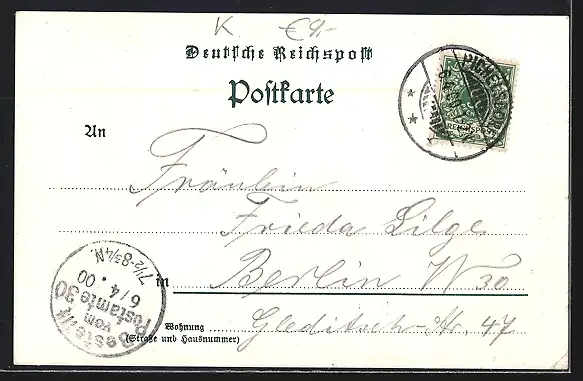 K €9,-
Deutsche Reichspost
Postkarte
REICHSPOST
An
Fräulein
Frieda Lilge
in Berlin W 30
Wohnung Gleditsch-Str. 47
(Straße und Hausnummer)
Bestellt
vom
Postamte 30
6/4.00
7½-8¾N.